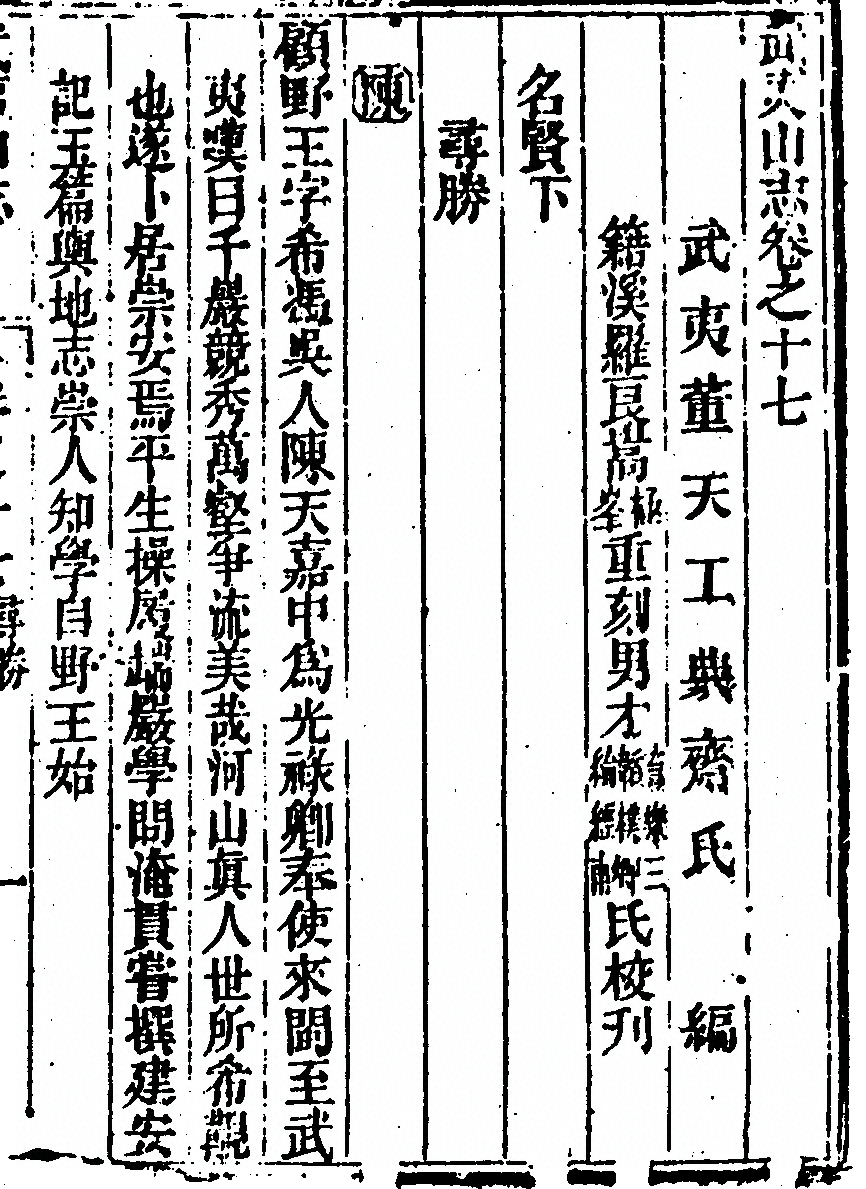 武夷山志卷之十七
武夷董天工典齋氏 編
籍溪羅良嵩極峯重刻男才樂三韜樸卿綸經甫氏校刋
名賢下
尋勝
陳
顧野王字希馮吳人陳天嘉中爲光祿卿奉使來閩至武
夷嘆曰千巖競秀萬壑爭流美哉河山眞人世所希覯
也遂卜居崇安焉平生操履端嚴學問淹貫嘗撰建安
記玉篇輿地志崇人知學自野王始
尋勝 一